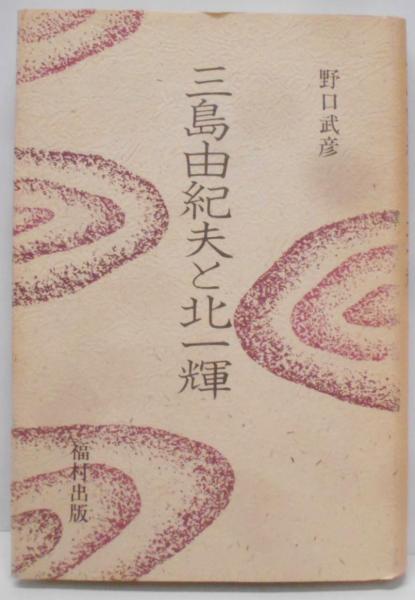 野口武彦
三島由紀夫と北一輝
福村出版